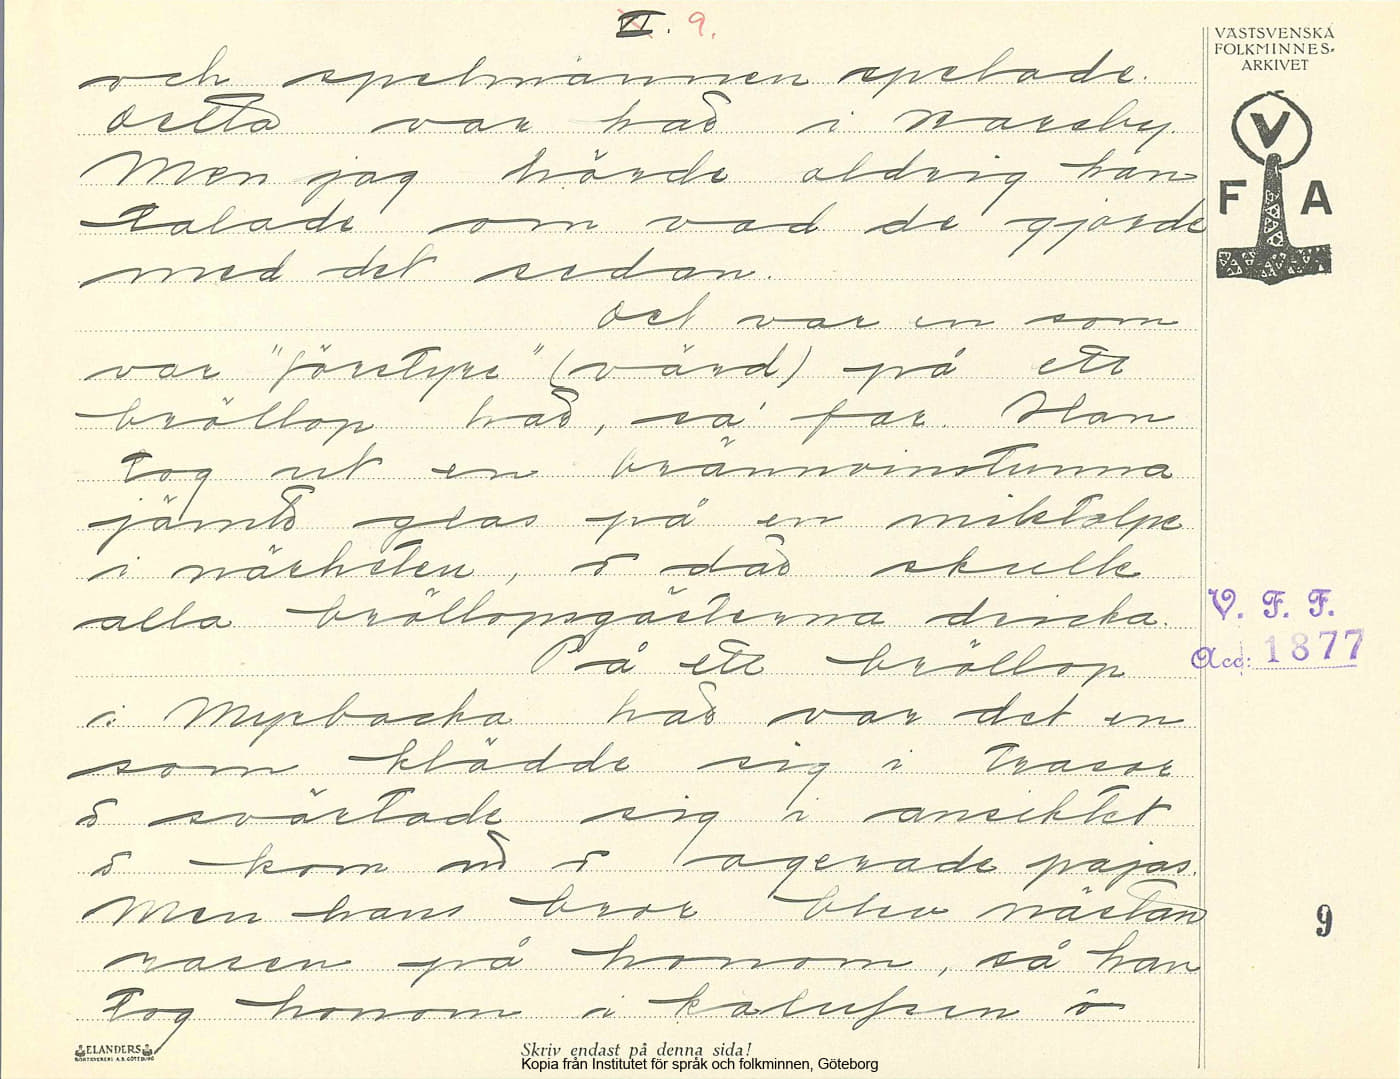 VI. 9.
VÄSTSVENSKA
FOLKMINNES-
ARKIVET
V
F A
och spelmännen spelade.
Detta var här i Nareby.
Men jag hörde aldrig han
talade om vad de gjorde
med det sedan.
Det var en som
var "förstyre" (värd) på ett
bröllop här, sa' far. Han
tog ut en brännvinstunna
jämte glas på en
i närheten, o där skulle
alla bröllopsgästerna dricka.
På ett bröllop
i Myrbacka här var det en
som klädde sig i trasor
o svärtade sig i ansiktet
o kom o agerade pajas.
Men hans bror blev nästan
rasen på honom, så han
tog honom i kalufsen o
V. F. F.
Acc: 1877
9
ELANDERS
BOKTRYCKERI A.B. GÖTEBORG
Skriv endast på denna sida!
Kopia från Institutet för språk och folkminnen, Göteborg